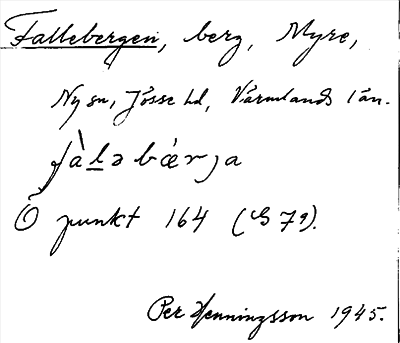 Fallebergen, berg, Myre,
Ny sn, Jösse hd, Värmlands län.
fàḻə bǽrȷa
Ö punkt 164 (G 79).
Per Henningsson 1945.